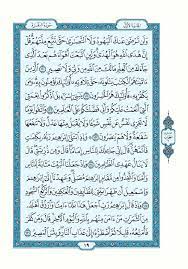 الجزء الأول
سورة البقرة
وَلَن تَرْضَىٰ عَنكَ ٱلْيَهُودُ وَلَا ٱلنَّصَٰرَىٰ حَتَّىٰ تَتَّبِعَ مِلَّتَهُمْ قُلْ
إِنَّ هُدَى ٱللَّهِ هُوَ ٱلْهُدَىٰ وَلَئِنِ ٱتَّبَعْتَ أَهْوَآءَهُم بَعْدَ ٱلَّذِى
جَآءَكَ مِنَ ٱلْعِلْمِ مَا لَكَ مِنَ ٱللَّهِ مِن وَلِىٍّ وَلَا نَصِيرٍ
ٱلَّذِينَ ءَاتَيْنَٰهُمُ ٱلْكِتَٰبَ يَتْلُونَهُۥ حَقَّ تِلَاوَتِهِۦٓ أُو۟لَٰٓئِكَ يُؤْمِنُونَ بِهِۦ
وَمَن يَكْفُرْ بِهِۦ فَأُو۟لَٰٓئِكَ هُمُ ٱلْخَٰسِرُونَ يَٰبَنِىٓ إِسْرَٰٓءِيلَ ٱذْكُرُوا۟
نِعْمَتِىَ ٱلَّتِىٓ أَنْعَمْتُ عَلَيْكُمْ وَأَنِّى فَضَّلْتُكُمْ عَلَى ٱلْعَٰلَمِينَ
وَٱتَّقُوا۟ يَوْمًا لَّا تَجْزِى نَفْسٌ عَن نَّفْسٍ شَيْـًٔا وَلَا يُقْبَلُ مِنْهَا عَدْلٌ وَلَا تَنفَعُهَا
شَفَٰعَةٌ وَلَا هُمْ يُنصَرُونَ وَإِذِ ٱبْتَلَىٰٓ إِبْرَٰهِۦمَ رَبُّهُۥ بِكَلِمَٰتٍ
فَأَتَمَّهُنَّ قَالَ إِنِّى جَاعِلُكَ لِلنَّاسِ إِمَامًا قَالَ وَمِن ذُرِّيَّتِى قَالَ لَا
يَنَالُ عَهْدِى ٱلظَّٰلِمِينَ وَإِذْ جَعَلْنَا ٱلْبَيْتَ مَثَابَةً لِّلنَّاسِ وَأَمْنًا
وَٱتَّخِذُوا۟ مِن مَّقَامِ إِبْرَٰهِۦمَ مُصَلًّى وَعَهِدْنَآ إِلَىٰٓ إِبْرَٰهِۦمَ
وَإِسْمَٰعِيلَ أَن طَهِّرَا بَيْتِىَ لِلطَّآئِفِينَ وَٱلْعَٰكِفِينَ وَٱلرُّكَّعِ
ٱلسُّجُودِ وَإِذْ قَالَ إِبْرَٰهِۦمُ رَبِّ ٱجْعَلْ هَٰذَا بَلَدًا ءَامِنًا وَٱرْزُقْ أَهْلَهُۥ
مِنَ ٱلثَّمَرَٰتِ مَنْ ءَامَنَ مِنْهُم بِٱللَّهِ وَٱلْيَوْمِ ٱلْءَاخِرِ قَالَ وَمَن كَفَرَ
فَأُمَتِّعُهُۥ قَلِيلًا ثُمَّ أَضْطَرُّهُۥٓ إِلَىٰ عَذَابِ ٱلنَّارِ وَبِئْسَ ٱلْمَصِيرُ
١٩